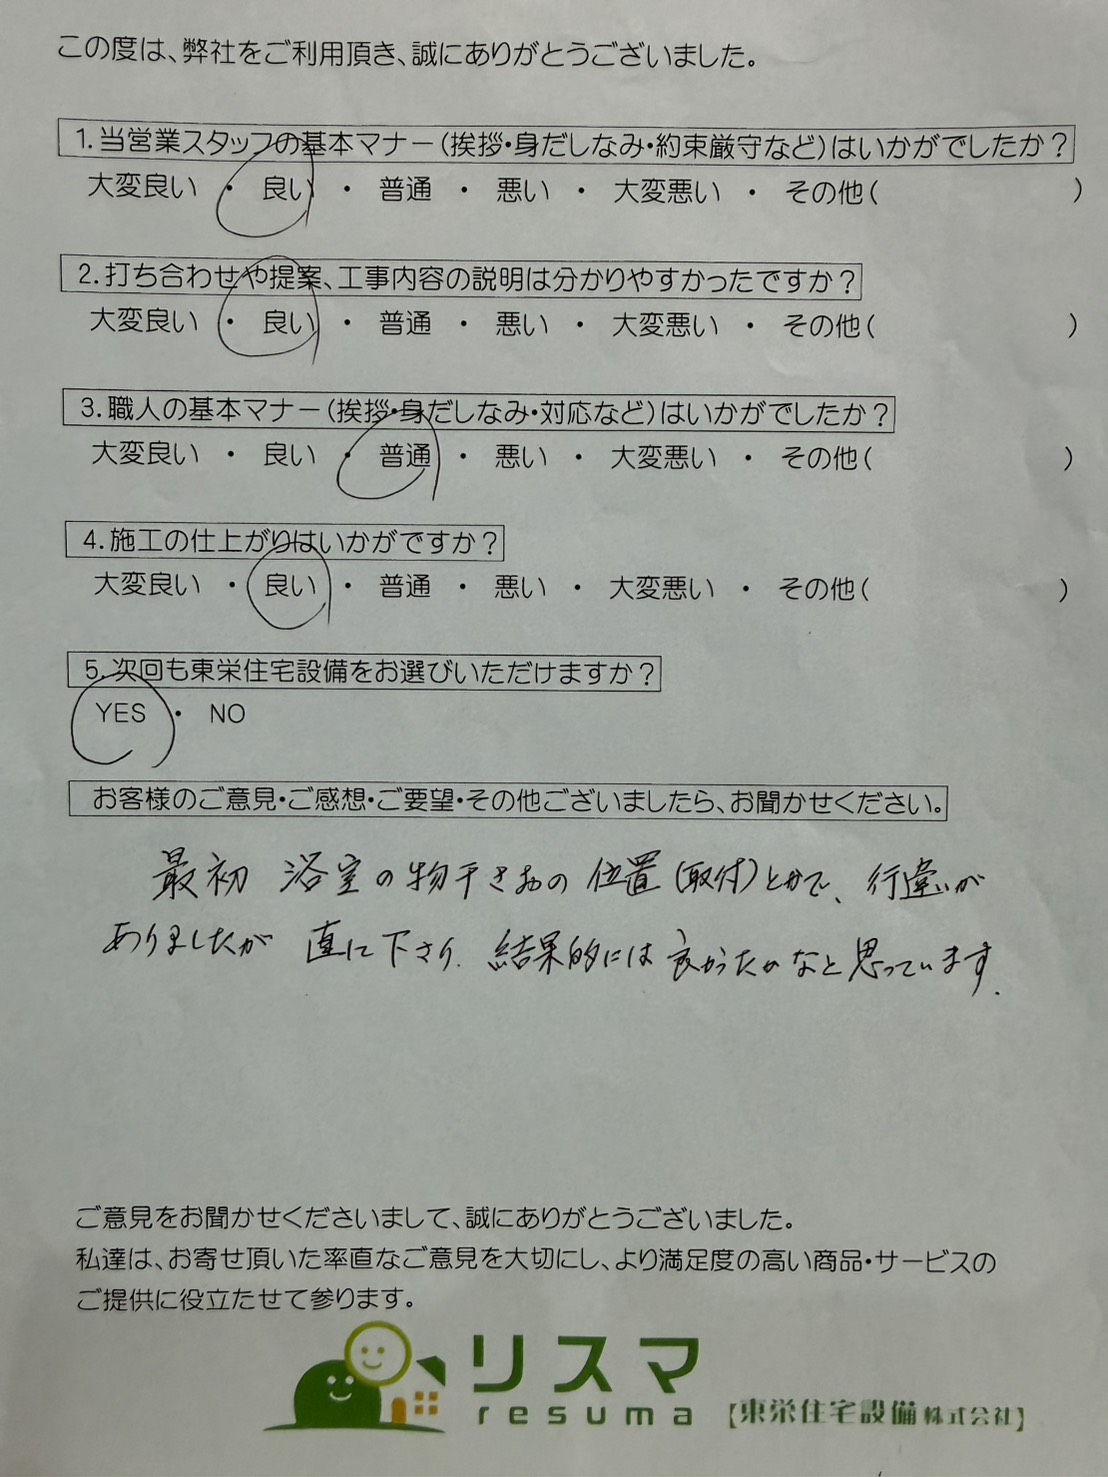 この度は、弊社をご利用頂き、誠にありがとうございました。
1.当営業スタッフの基本マナー(挨拶・身だしなみ・約束厳守など)はいかがでしたか？
大変良い ・ 良い ・ 普通 ・ 悪い ・ 大変悪い ・ その他( )
2.打ち合わせや提案、工事内容の説明は分かりやすかったですか？
大変良い ・ 良い ・ 普通 ・ 悪い ・ 大変悪い ・ その他( )
3.職人の基本マナー(挨拶・身だしなみ・対応など)はいかがでしたか？
大変良い ・ 良い ・ 普通 ・ 悪い ・ 大変悪い ・ その他( )
4.施工の仕上がりはいかがですか？
大変良い ・ 良い ・ 普通 ・ 悪い ・ 大変悪い ・ その他( )
5.次回も東栄住宅設備をお選びいただけますか？
YES ・ NO
お客様のご意見・ご感想・ご要望・その他ございましたら、お聞かせください。
最初 浴室の物干さおの位置(取付)とかで、行違いが
ありましたが 直に下さり、結果的には良かったかなと思っています.
ご意見をお聞かせくださいまして、誠にありがとうございました。
私達は、お寄せ頂いた率直なご意見を大切にし、より満足度の高い商品・サービスの
ご提供に役立たせて参ります。
リスマ
resuma 【東栄住宅設備株式会社】